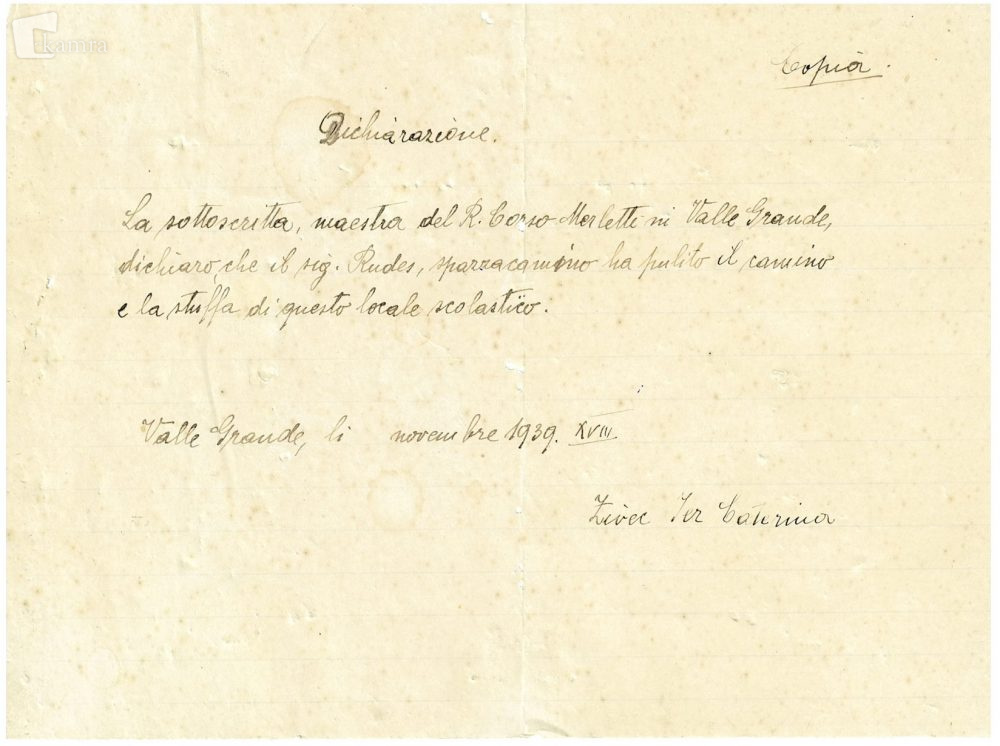 kamra
Copia.
Dichiarazione.
La sottoscritta, maestra del R. Corso Merletti in Valle Grande,
dichiaro che il sig. Rudes, spazzacamino ha pulito il camino
e la stuffa di questo locale scolastico.
Valle Grande, li novembre 1939. XVIII
Caterina